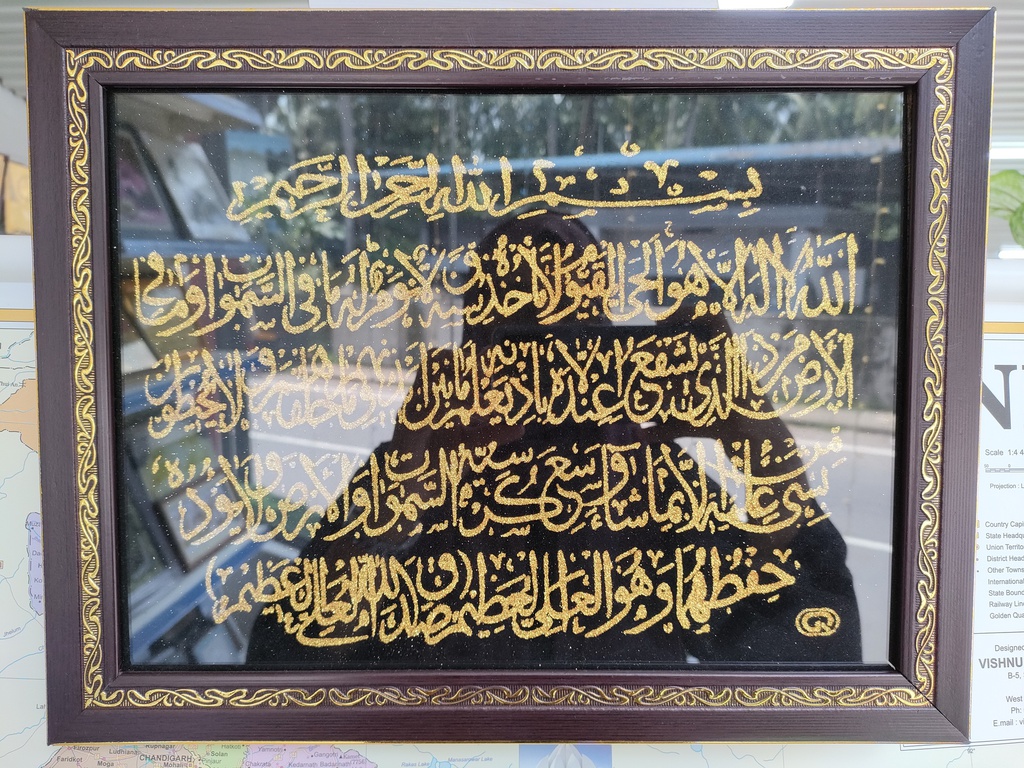 بسم الله الرحمن الرحيم
الله لا اله الا هو الحي القيوم لا تأخذه سنة ولا نوم له ما في السموات وما في
الارض من ذا الذي يشفع عنده الا باذنه يعلم ما بين ايديهم وما خلفهم ولا يحيطون
بشيء من علمه الا بما شاء وسع كرسيه السموات والارض ولا يؤده
حفظهما وهو العلي العظيم صدق الله العلي العظيم
N
Scale 1:4 4
Projection : L
Country Capi
State Headqu
Union Territo
District Head
Other Towns
International
State Bound
Railway Line
Golden Qua
Designed
VISHNU
B-5,
West
Ph:
E.mail : vi
Firozpur
Ludhianap
Rupnagar
Faridkot
Moga
CHANDIGARH
Solan
Kedarnath
Badarinath